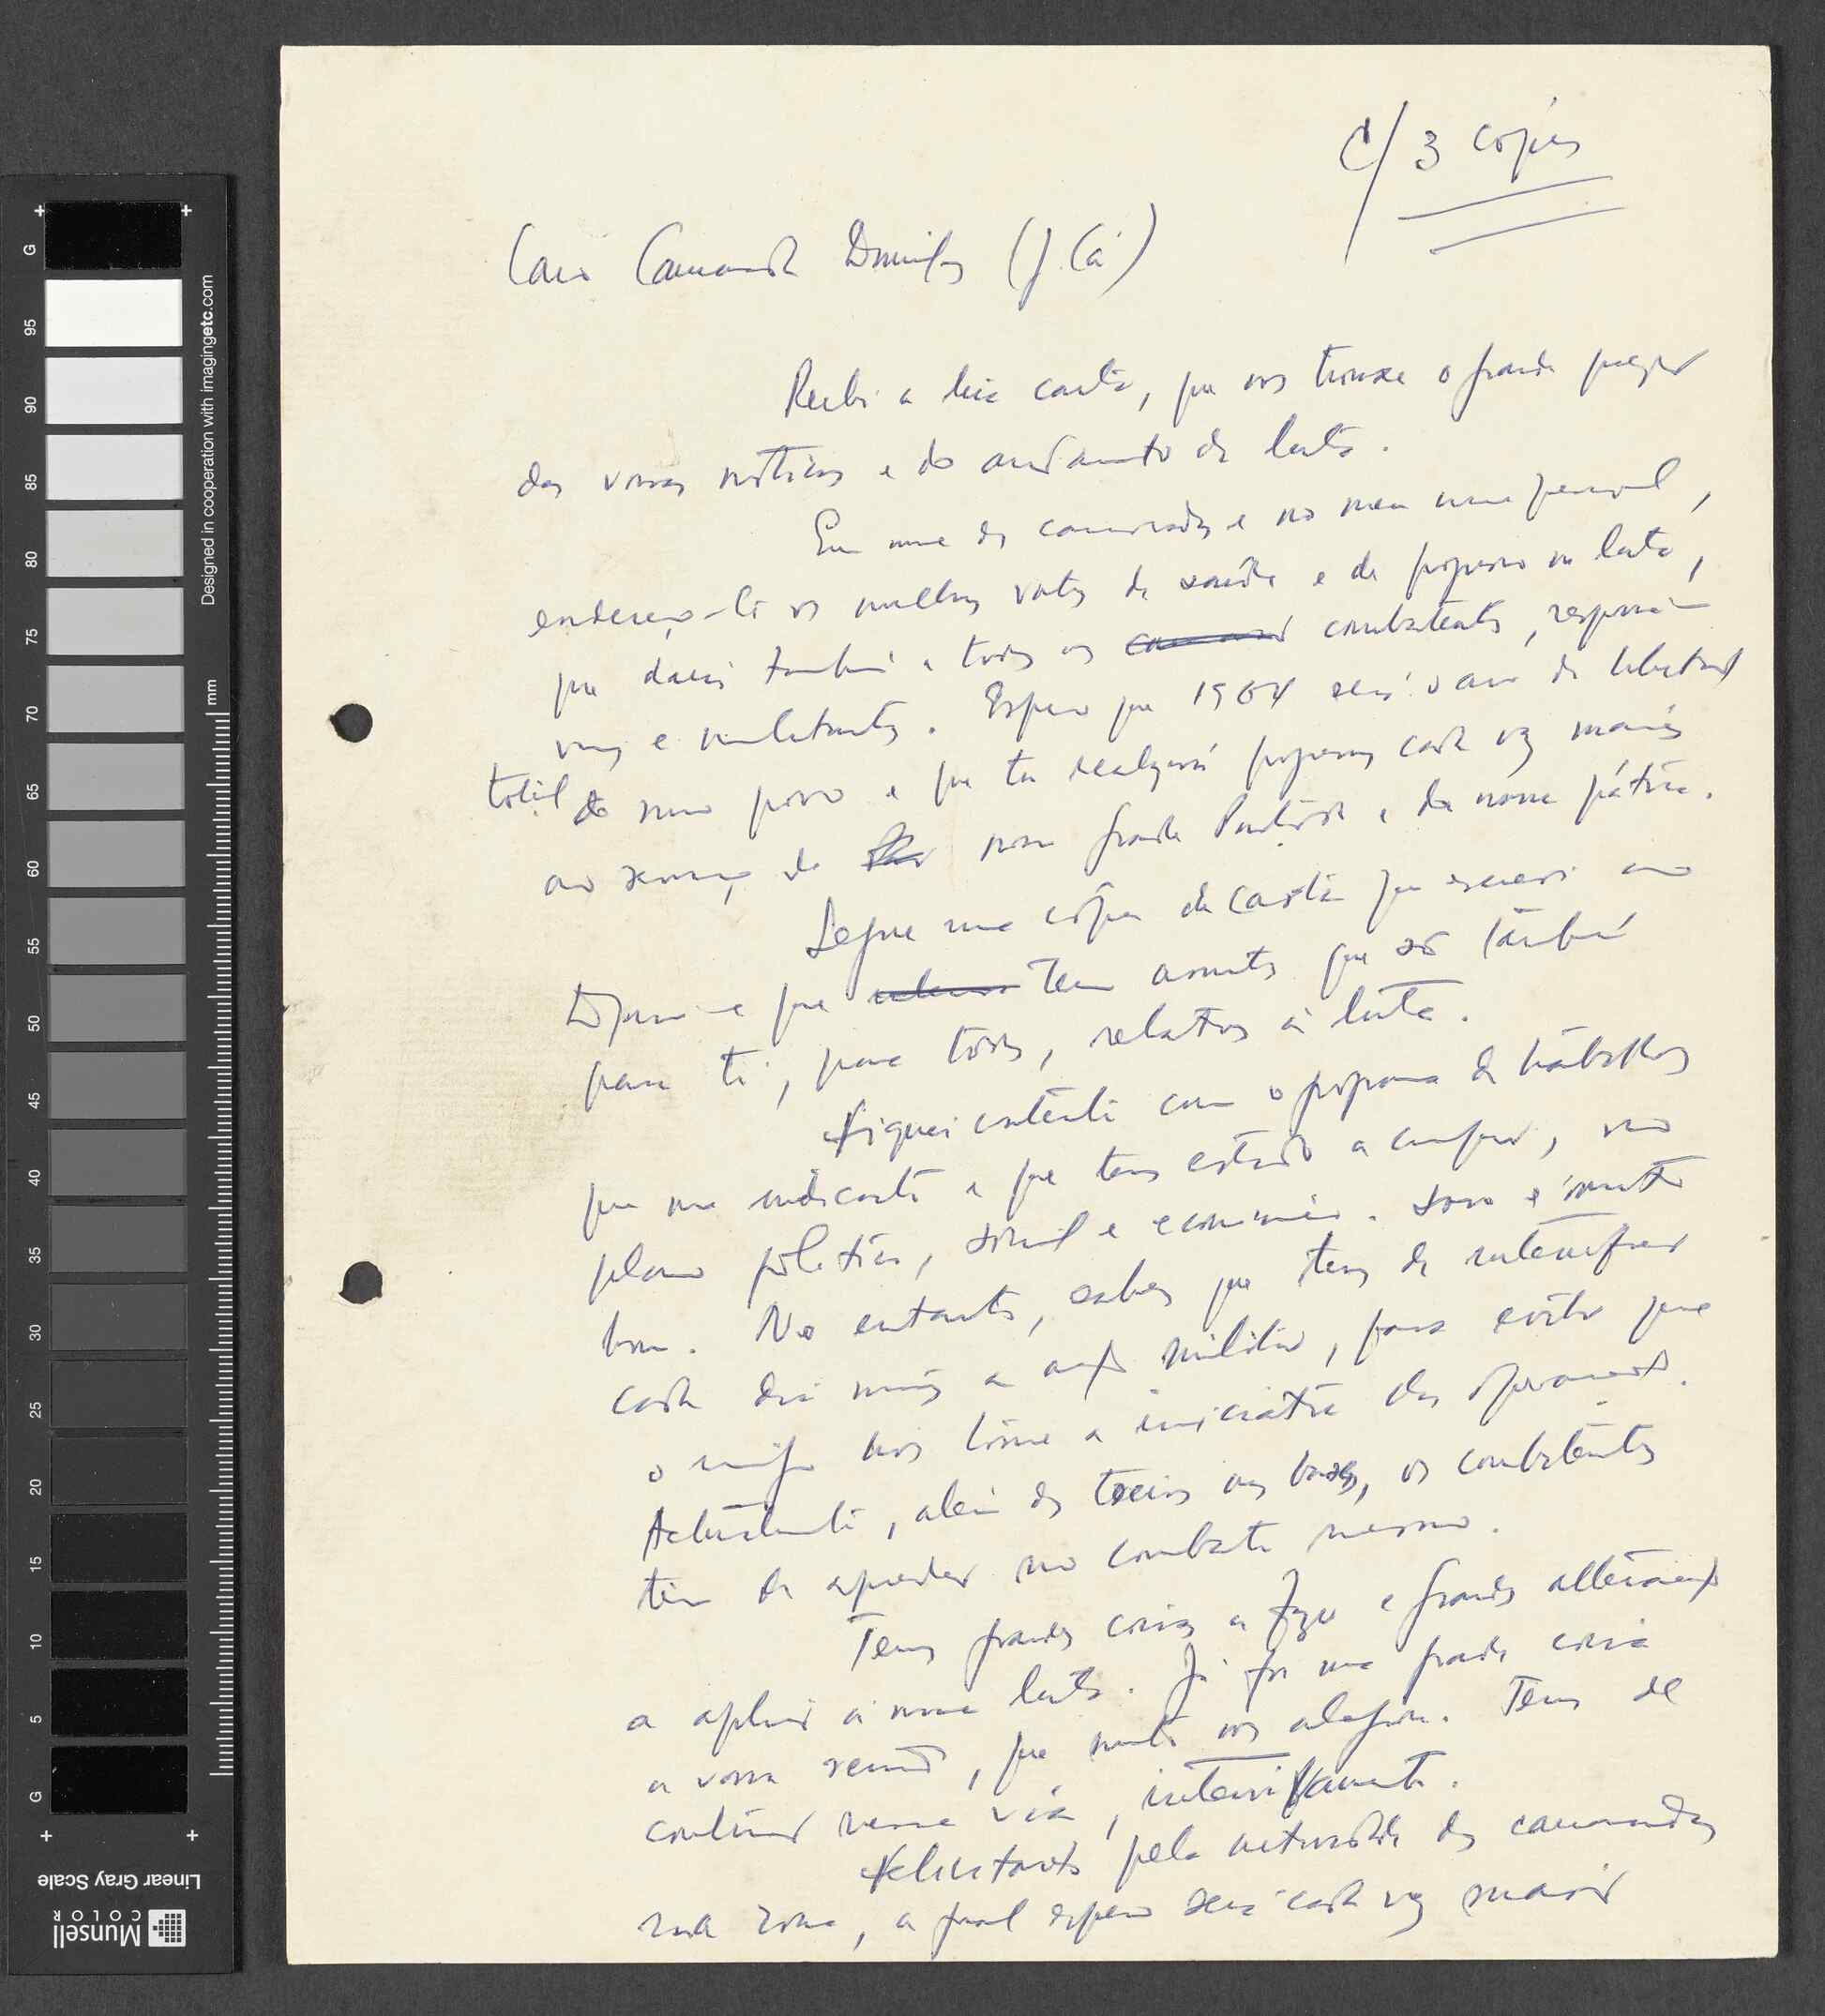 C/ 3 cópias
Caro Camarada Domingos (J. Cá)
Recebi a tua carta, que nos trouxe o grande prazer
das vossas notícias e do andamento da luta.
Em nome dos camaradas e no meu nome pessoal,
endereço-te os melhores votos de saúde e de progresso na luta,
que darás também a todos os combatentes, responsá-
veis e militantes. Espero que 1964 será o ano da libertação
total do nosso povo e que tu realizarás progressos cada vez maiores
ao serviço do nosso grande Partido e da nossa pátria.
Segue uma cópia da carta que escrevi ao
Osvaldo e que tem assuntos que são também
para ti, para todos, relativos à luta.
Fiquei contente com o programa de trabalhos
que me indicaste e que tens estado a cumprir, no
plano político, social e económico. Isso é muito
bom. No entanto, sabes que tens de intensificar
cada dia mais a acção militar, para evitar que
o inimigo nos tome a iniciativa das operações.
Actualmente, além dos treinos nas bases, os combatentes
têm de aprender no combate mesmo.
Temos grandes coisas a fazer e grandes alterações
a aplicar à nossa luta. Já foi uma grande coisa
a vossa reunião, que muito nos alegrou. Temos de
continuar nessa via, intensificamente.
Felicito-te pela actividade dos camaradas
na zona, a qual espero será cada vez maior
95
90
85
80
75
70
65
60
55
50
45
40
35
30
25
20
15
10
5
G
G
mm
Designed in cooperation with imagingetc.com
Linear Gray Scale
Munsell
COLOR